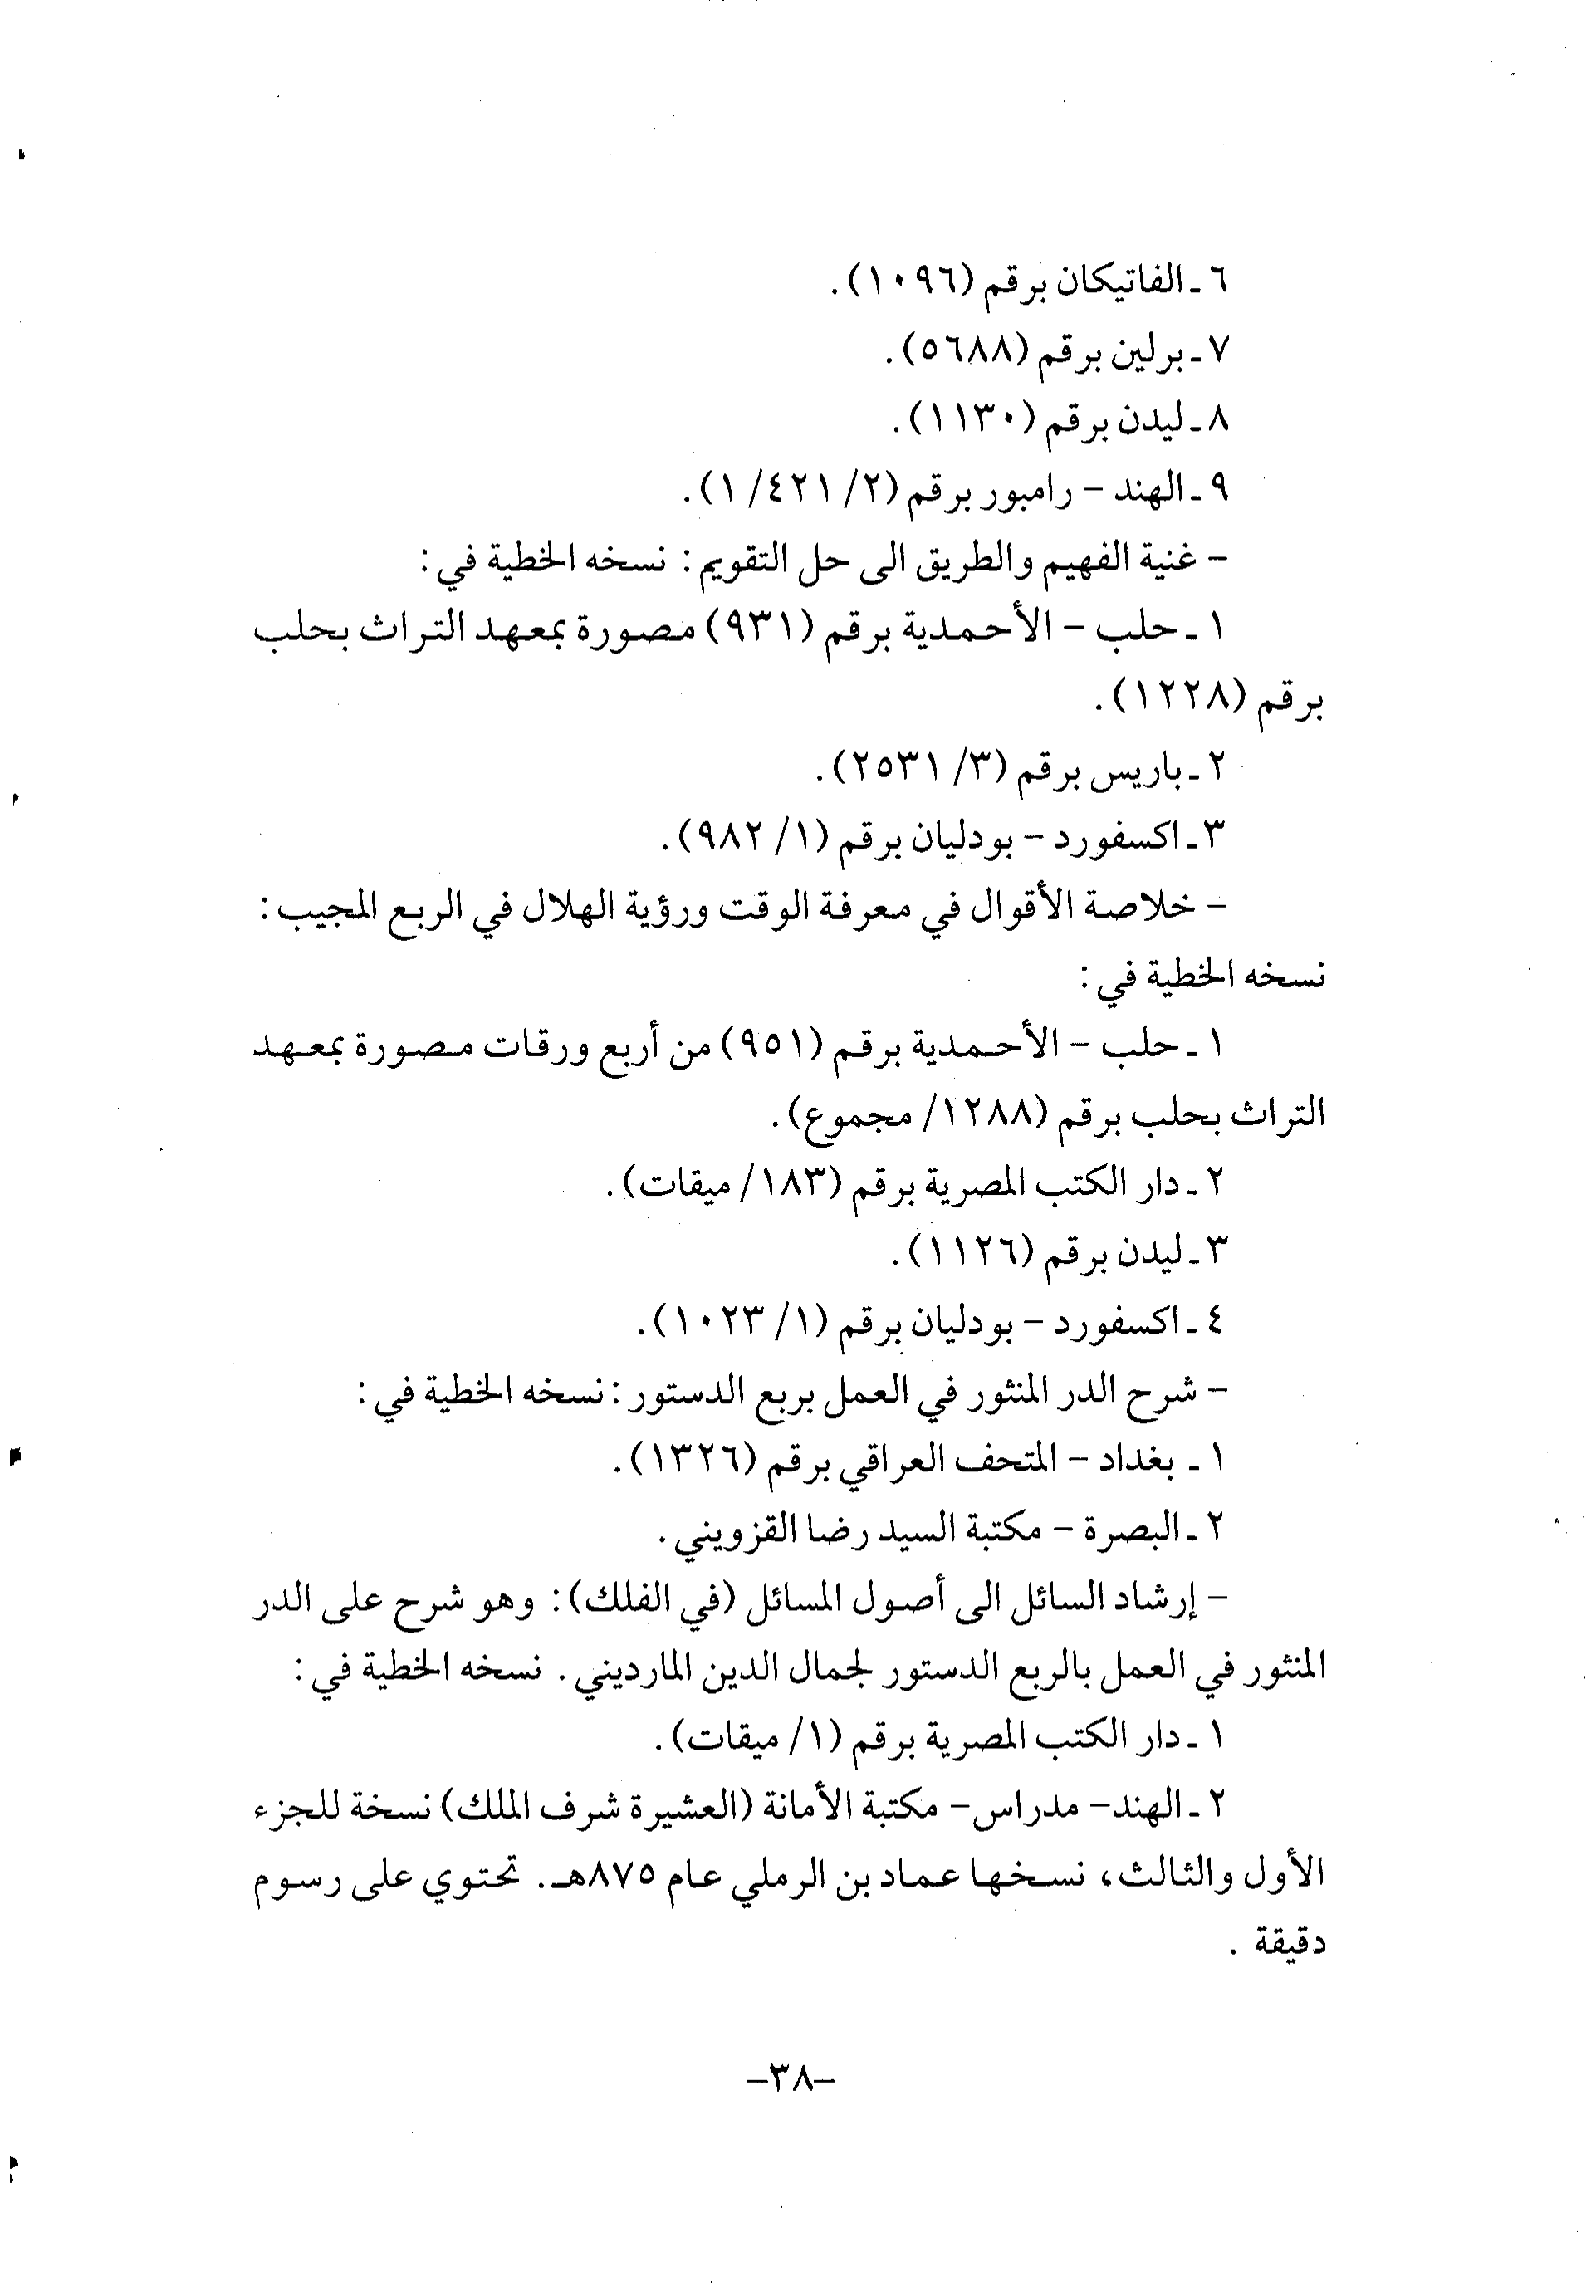 ٦ ـ الفاتيكان برقم (١٠٩٦).
٧ ـ برلين برقم (٥٦٨٨).
٨ ـ ليدن برقم (١١٣٠).
٩ ـ الهند – رامبور برقم (٢/ ٤٢١/ ١).
– غنية الفهيم والطريق الى حل التقويم: نسخه الخطية في:
١ ـ حلب – الأحمدية برقم (٩٣١) مصورة بمعهد التراث بحلب
برقم (١٢٢٨).
٢ ـ باريس برقم (٣/ ٢٥٣١).
٣ ـ اكسفورد – بودليان برقم (١/ ٩٨٢).
– خلاصة الأقوال في معرفة الوقت ورؤية الهلال في الربع المجيب:
نسخه الخطية في:
١ ـ حلب – الأحمدية برقم (٩٥١) من أربع ورقات مصورة بمعهد
التراث بحلب برقم (١٢٨٨/ مجموع).
٢ ـ دار الكتب المصرية برقم (١٨٣/ ميقات).
٣ ـ ليدن برقم (١١٢٦).
٤ ـ اكسفورد – بودليان برقم (١/ ١٠٢٣).
– شرح الدر المنثور في العمل بربع الدستور: نسخه الخطية في:
١ ـ بغداد – المتحف العراقي برقم (١٣٢٦).
٢ ـ البصرة – مكتبة السيد رضا القزويني.
– إرشاد السائل الى أصول المسائل (في الفلك): وهو شرح على الدر
المنثور في العمل بالربع الدستور لجمال الدين المارديني. نسخه الخطية في:
١ ـ دار الكتب المصرية برقم (١/ ميقات).
٢ ـ الهند– مدراس– مكتبة الأمانة (العشيرة شرف الملك) نسخة للجزء
الأول والثالث، نسخها عماد بن الرملي عام ٨٧٥هـ. تحتوي على رسوم
دقيقة .
–٣٨–